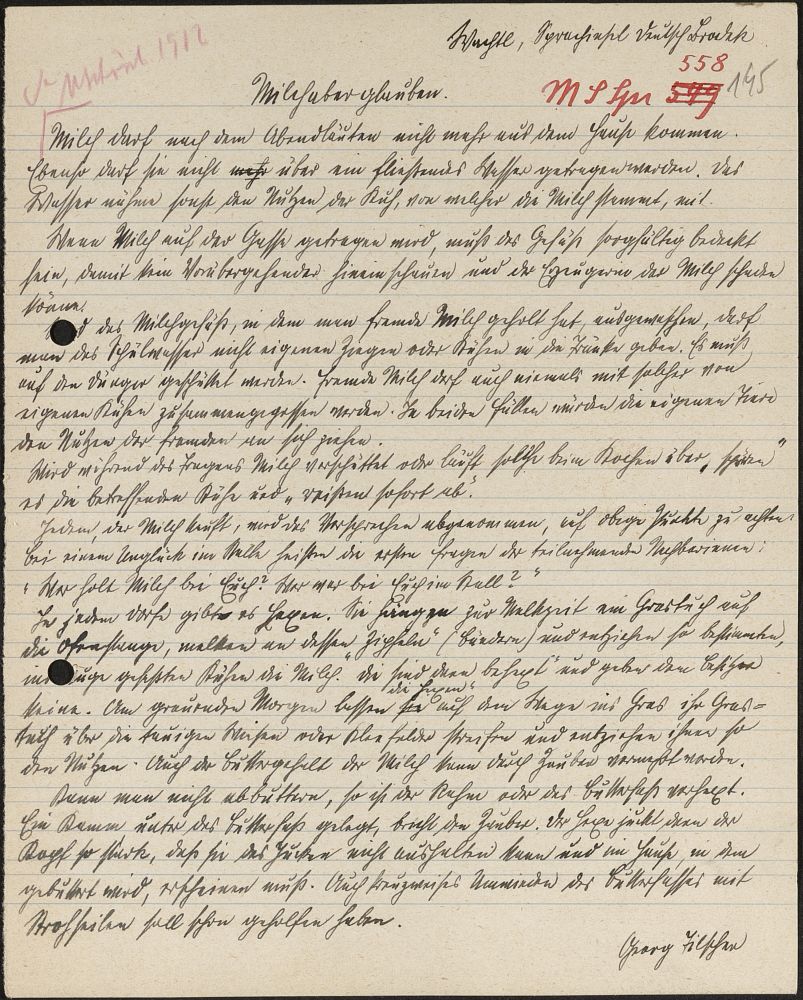 Wachtl, Sprachinsel Deutsch Brodek
558
M S Spr 549 145
1912
Milchaberglauben.
Milch darf nach dem Abendläuten nicht mehr aus dem Hause kommen.
Ebenso darf sie nicht mehr über ein fließendes Wasser getragen werden. Das
Wasser nähme sonst den Nutzen der Kuh, von welcher die Milch stammt, mit.
Wenn Milch auf der Gasse getragen wird, muß das Gefäß sorgfältig bedeckt
sein, damit kein Vorübergehender hineinschauen und der Erzeugerin der Milch schaden
könne.
d das Milchgefäß, in dem man fremde Milch geholt hat, ausgewaschen, darf
man das Spülwasser nicht eigenen Ziegen oder Kühen in die Tränke geben. Es muß
auf den Dünger geschüttet werden. Fremde Milch darf auch niemals mit solcher von
eigenen Kühen zusammengegossen werden. In beiden Fällen würden die eigenen Tiere
den Nutzen der fremden an sich ziehen.
Wird während des Tragens Milch verschüttet oder läuft solche beim Kochen über, „spüren"
es die betreffenden Kühe und „reißen sofort ab".
Jedem, der Milch kauft, wird das Versprechen abgenommen, auf obige Punkte zu achten.
Bei einem Unglück im Stalle heißen die ersten Fragen der teilnehmenden Nachbarinnen:
"Wer holt Milch bei Euch? Wer war bei Euch im Stall?"
In jedem Dorfe gibt es Hexen. Sie hängen zur Melkzeit ein Grastuch auf
die Ofenstange, melken an dessen „Zipfeln" (Bändern) und entziehen so bestimmten,
ins Auge gefaßten Kühen die Milch. Die sind dann „behext" und geben dem Besitzer
keine. Am grauenden Morgen lassen sie die Hexen auf dem Wege ins Gras ihr Gras=
tuch über die tauigen Wiesen oder Kleefelder streifen und entziehen ihnen so
den Nutzen. Auch der Buttergehalt der Milch kann durch Zauber verhext werden.
Kann man nicht abbuttern, so ist der Rahm oder das Butterfaß verhext.
Ein Kamm unter das Butterfaß gelegt, bricht den Zauber. Der Hexe juckt dann der
Kopf so stark, daß sie das Jucken nicht aushalten kann und im Hause, in dem
gebuttert wird, erscheinen muß. Auch kreuzweises Umwinden des Butterfasses mit
Strohseilen soll schon geholfen haben.
Georg Tilscher